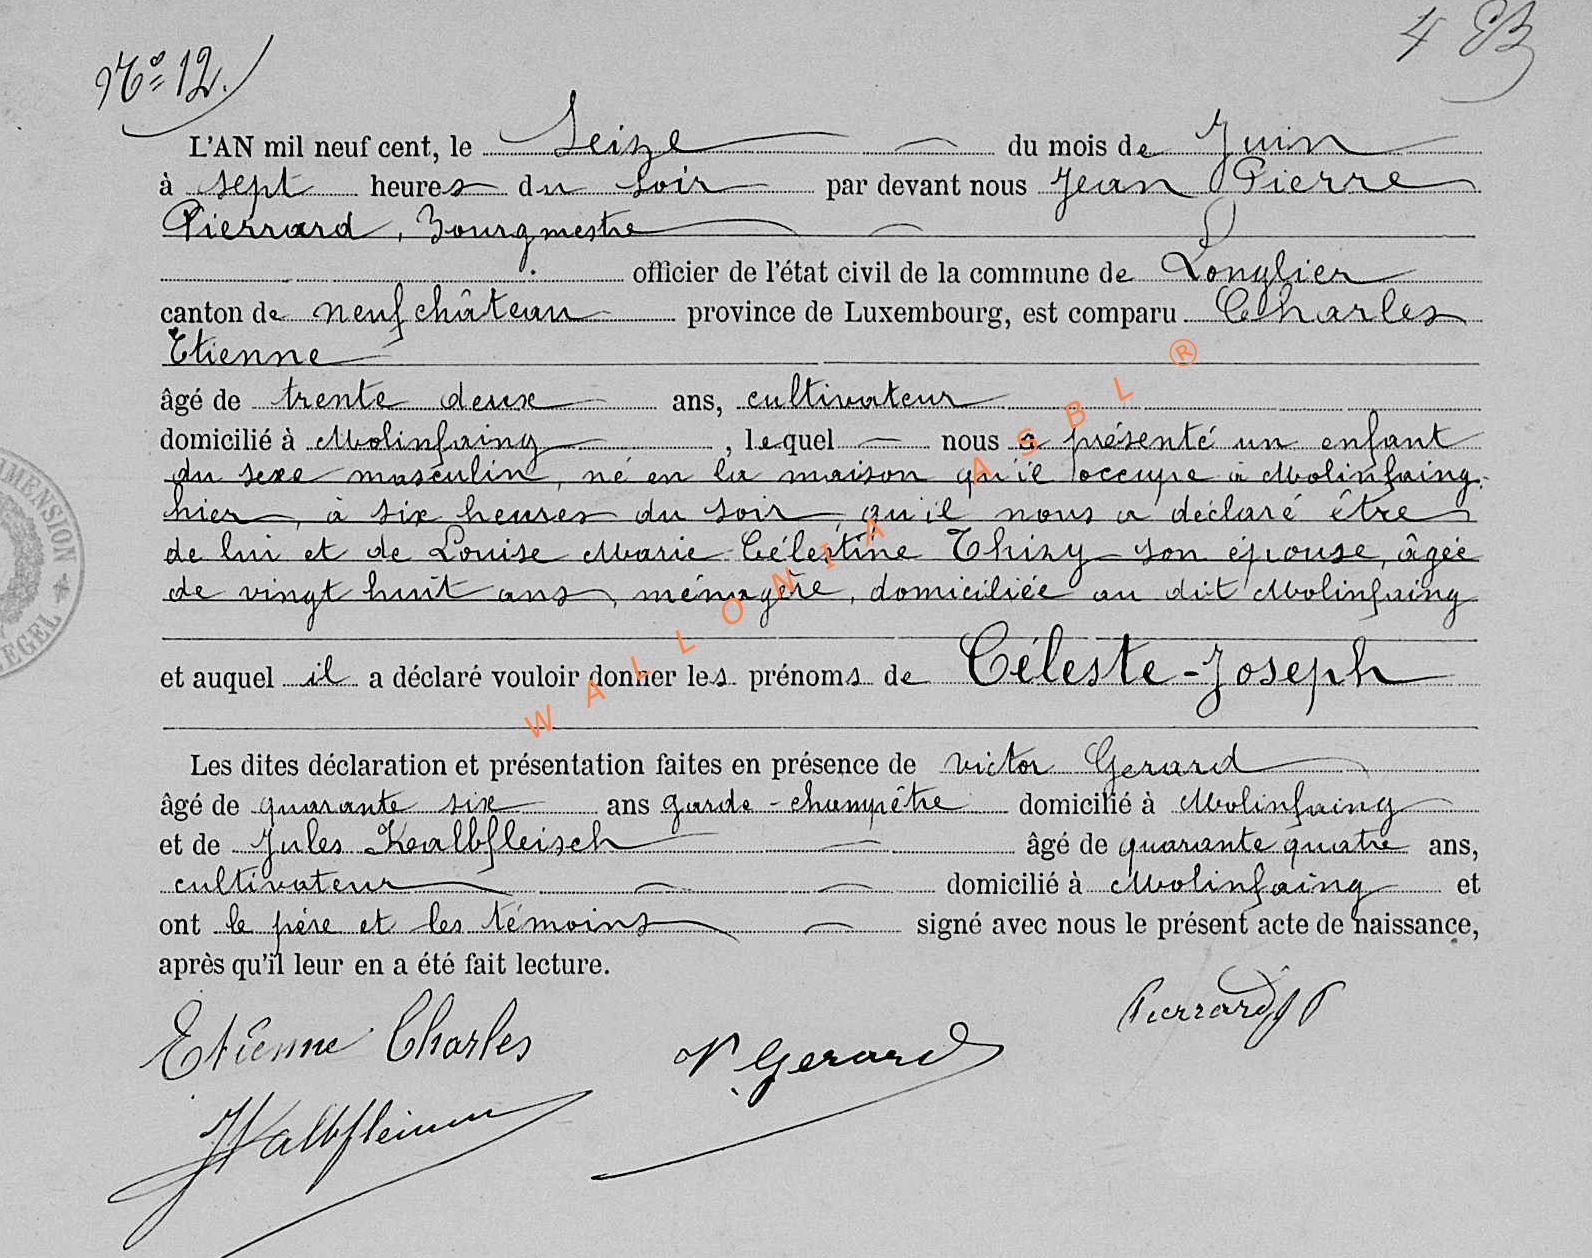 N° 12.
4 EB
L'AN mil neuf cent, le Seize du mois de Juin
à sept heures du soir par devant nous Jean Pierre
Pierrard, Bourgmestre
officier de l'état civil de la commune de Longlier
canton de neufchâteau province de Luxembourg, est comparu Charles
Etienne
âgé de trente deux ans, cultivateur
domicilié à Molinfaing, lequel nous a présenté un enfant
du sexe masculin, né en la maison qu'il occupe à Molinfaing
hier, à six heures du soir, qu'il nous a déclaré être
de lui et de Louise Marie Célestine Thiry son épouse, âgée
de vingt huit ans, ménagère, domiciliée au dit Molinfaing
et auquel il a déclaré vouloir donner les prénoms de Céleste-Joseph
Les dites déclaration et présentation faites en présence de victor Gerard
âgé de quarante six ans garde-champêtre domicilié à Molinfaing
et de Jules Kalbfleisch âgé de quarante quatre ans,
cultivateur domicilié à Molinfaing et
ont le père et les témoins signé avec nous le présent acte de naissance,
après qu'il leur en a été fait lecture.
Pierrard JP
Etienne Charles
V. Gerard
WALLONIA ASBL ®